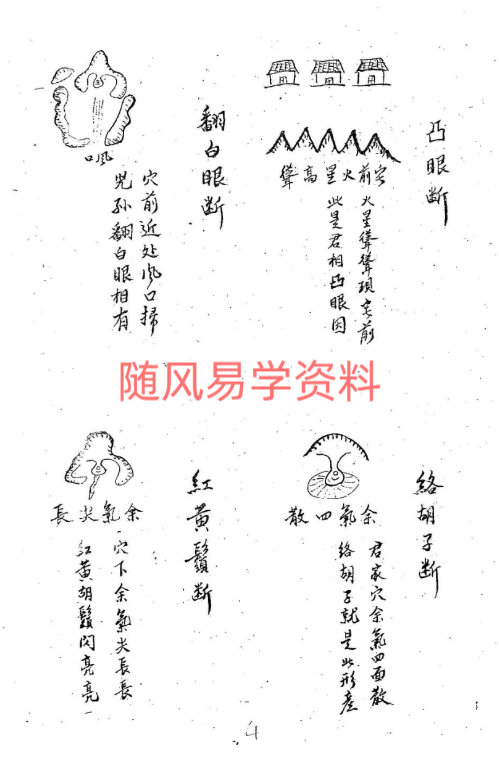 凸眼断
宅前火星高聳
火星聳聳現宅前
此是君相凸眼因
翻白眼断
風口
穴前近处风口掃
兒孫翻白眼相有
随风易学资料
絡胡子断
余氣四散
君家穴余氣四面散
絡胡子就是此形产
紅黄鬚断
余氣尖長
穴下余氣尖長長
红黄胡鬚闪亮亮
4